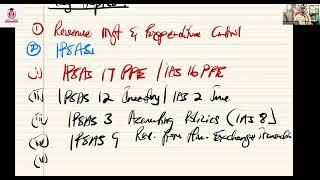 Key Topics
① Revenue Mgt & Expenditure Control
② IPSASs
(i) IPSAS 17 PPE / IAS 16 PPE
(ii) IPSAS 12 Inventory / IAS 2 Inve
(iii) IPSAS 3 Accounting Policies (IAS 8)
(iv) IPSAS 9 Rev. from Exchange Transaction
(v)